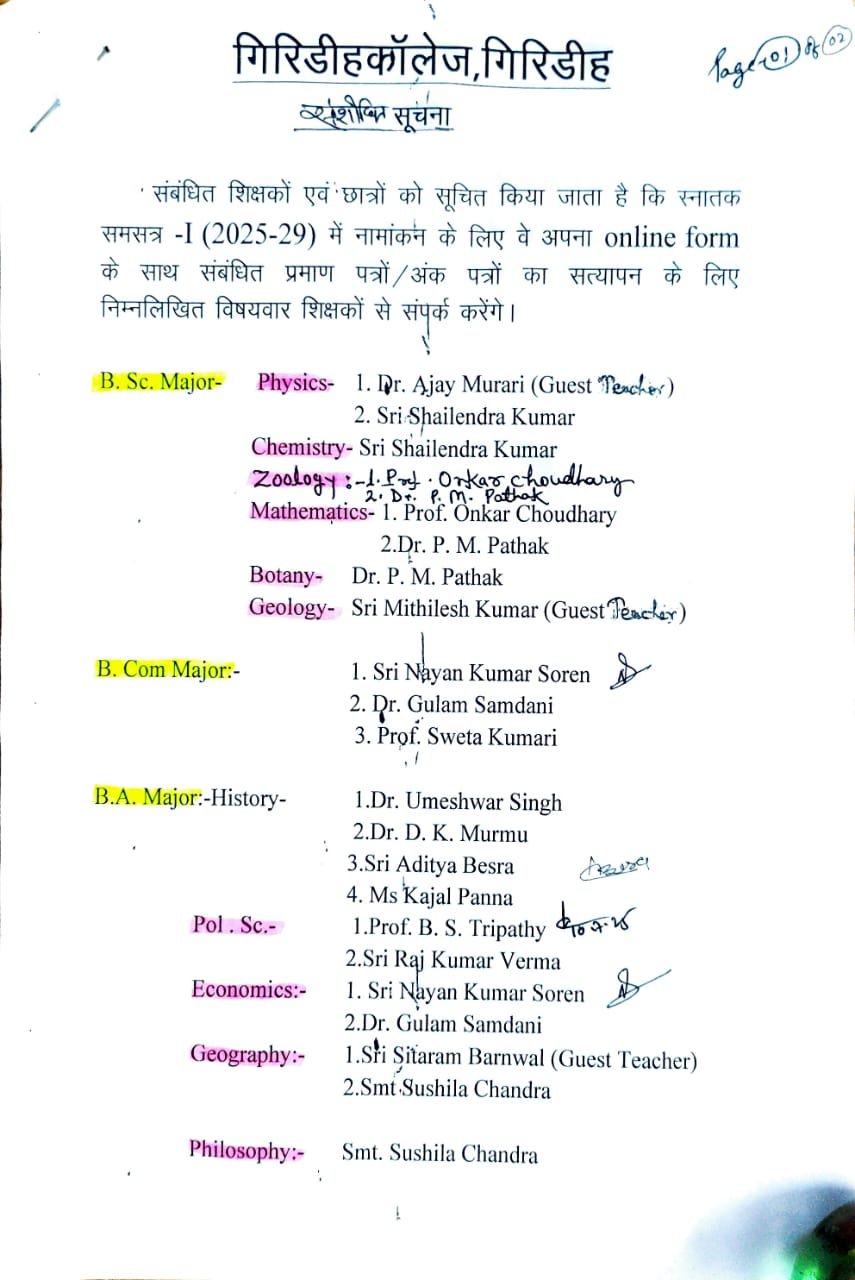 Page-01 of 02
गिरिडीहकॉलेज,गिरिडीह
संशोधित सूचना
संबंधित शिक्षकों एवं छात्रों को सूचित किया जाता है कि स्नातक
समसत्र -I (2025-29) में नामांकन के लिए वे अपना online form
के साथ संबंधित प्रमाण पत्रों/अंक पत्रों का सत्यापन के लिए
निम्नलिखित विषयवार शिक्षकों से संपर्क करेंगे।
B. Sc. Major- Physics- 1. Dr. Ajay Murari (Guest Teacher)
2. Sri Shailendra Kumar
Chemistry- Sri Shailendra Kumar
Zoology :- 1. Prof. Onkar Choudhary
2. Dr. P. M. Pathak
Mathematics- 1. Prof. Onkar Choudhary
2.Dr. P. M. Pathak
Botany- Dr. P. M. Pathak
Geology- Sri Mithilesh Kumar (Guest Teacher)
B. Com Major:- 1. Sri Nayan Kumar Soren
2. Dr. Gulam Samdani
3. Prof. Sweta Kumari
B.A. Major:-History- 1.Dr. Umeshwar Singh
2.Dr. D. K. Murmu
3.Sri Aditya Besra
4. Ms Kajal Panna
Pol . Sc.- 1.Prof. B. S. Tripathy
2.Sri Raj Kumar Verma
Economics:- 1. Sri Nayan Kumar Soren
2.Dr. Gulam Samdani
Geography:- 1.Sri Sitaram Barnwal (Guest Teacher)
2.Smt Sushila Chandra
Philosophy:- Smt. Sushila Chandra